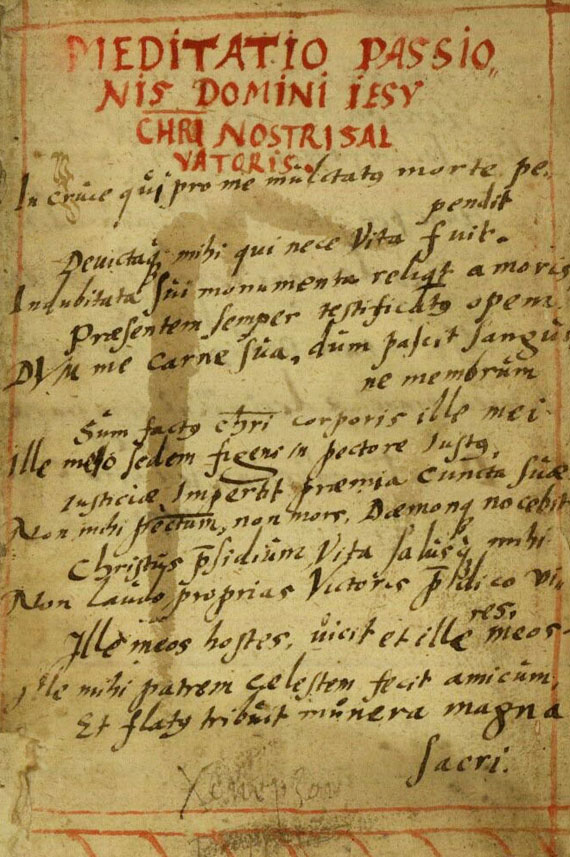 MEDITATIO PASSIO
NIS DOMINI IESV
CHRI NOSTRI SAL
VATORIS.
In cruce qui pro me mulctatꝰ morte pe,
pendit
Devictaq; mihi qui nece Vita fuit.
Indubitata sui monumenta reliqt amoris
Præsentem semper testificatꝰ opem.
Dum me carne sua, dum pascit sangui
ne membrum
Sum factꝰ chri corporis ille mei.
Ille meo sedem figens in pectore Iustꝰ,
Iusticiæ Impertit præmia cuncta suæ
Non mihi, non mors, Dæmonq nocebit
Christꝰ p̄sidium Vita salusq; mihi
Non laudo proprias Victoris p̄dico vi-
res,
Ille meos hostes, vicit et ille meos.
Ille mihi patrem celestem fecit amicum,
Et flatꝰ tribuit munera magna
sacri.
Xenophon